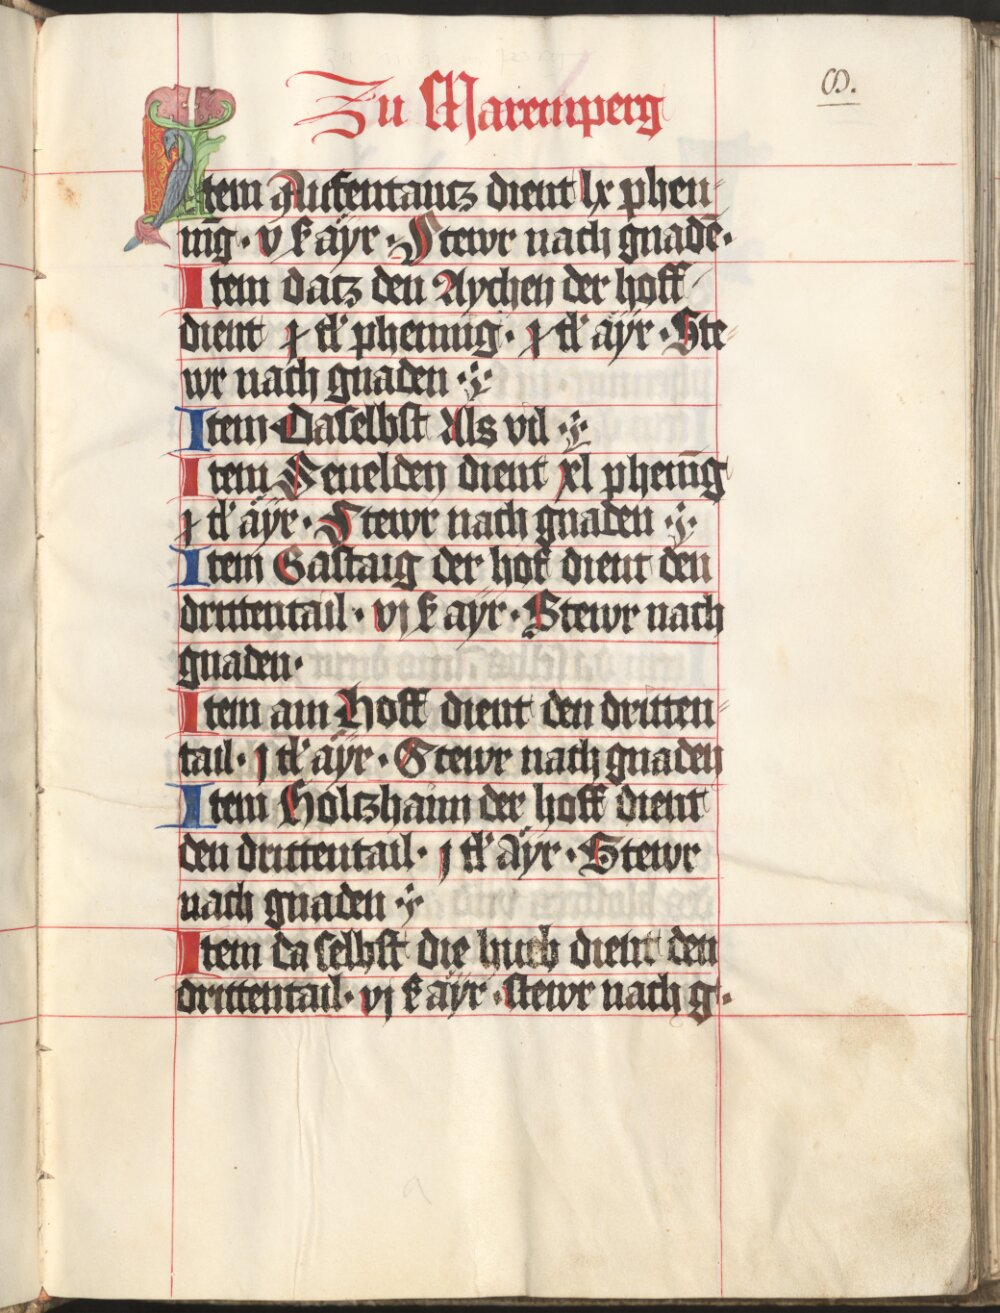 Zu Maremperg
Item Aufentancz dient lx phen-
nīg · v ß aÿr · Stewr nach gnadē·
Item datz den Aychen der hoff
dient ꝛ tl' phennig · ꝛ tl' aÿr · Ste-
wr nach gnaden
Item Daselbst Als vil
Item Seuelden dient xl phenīg
ꝛ tl' aÿr · Stewr nach gnaden
Item Gastaig der hof dient den
drittentail · vj ß aÿr · Stewr nach
gnaden·
Item am Hoff dient den dritten-
tail · j tl' aÿr · Stewr nach gnaden
Item Holtzhaim der hoff dient
den drittentail · j tl' aÿr · Stewr
nach gnaden
Item da selbst die hub dient den
drittentail · vj ß aÿr · stewr nach g·